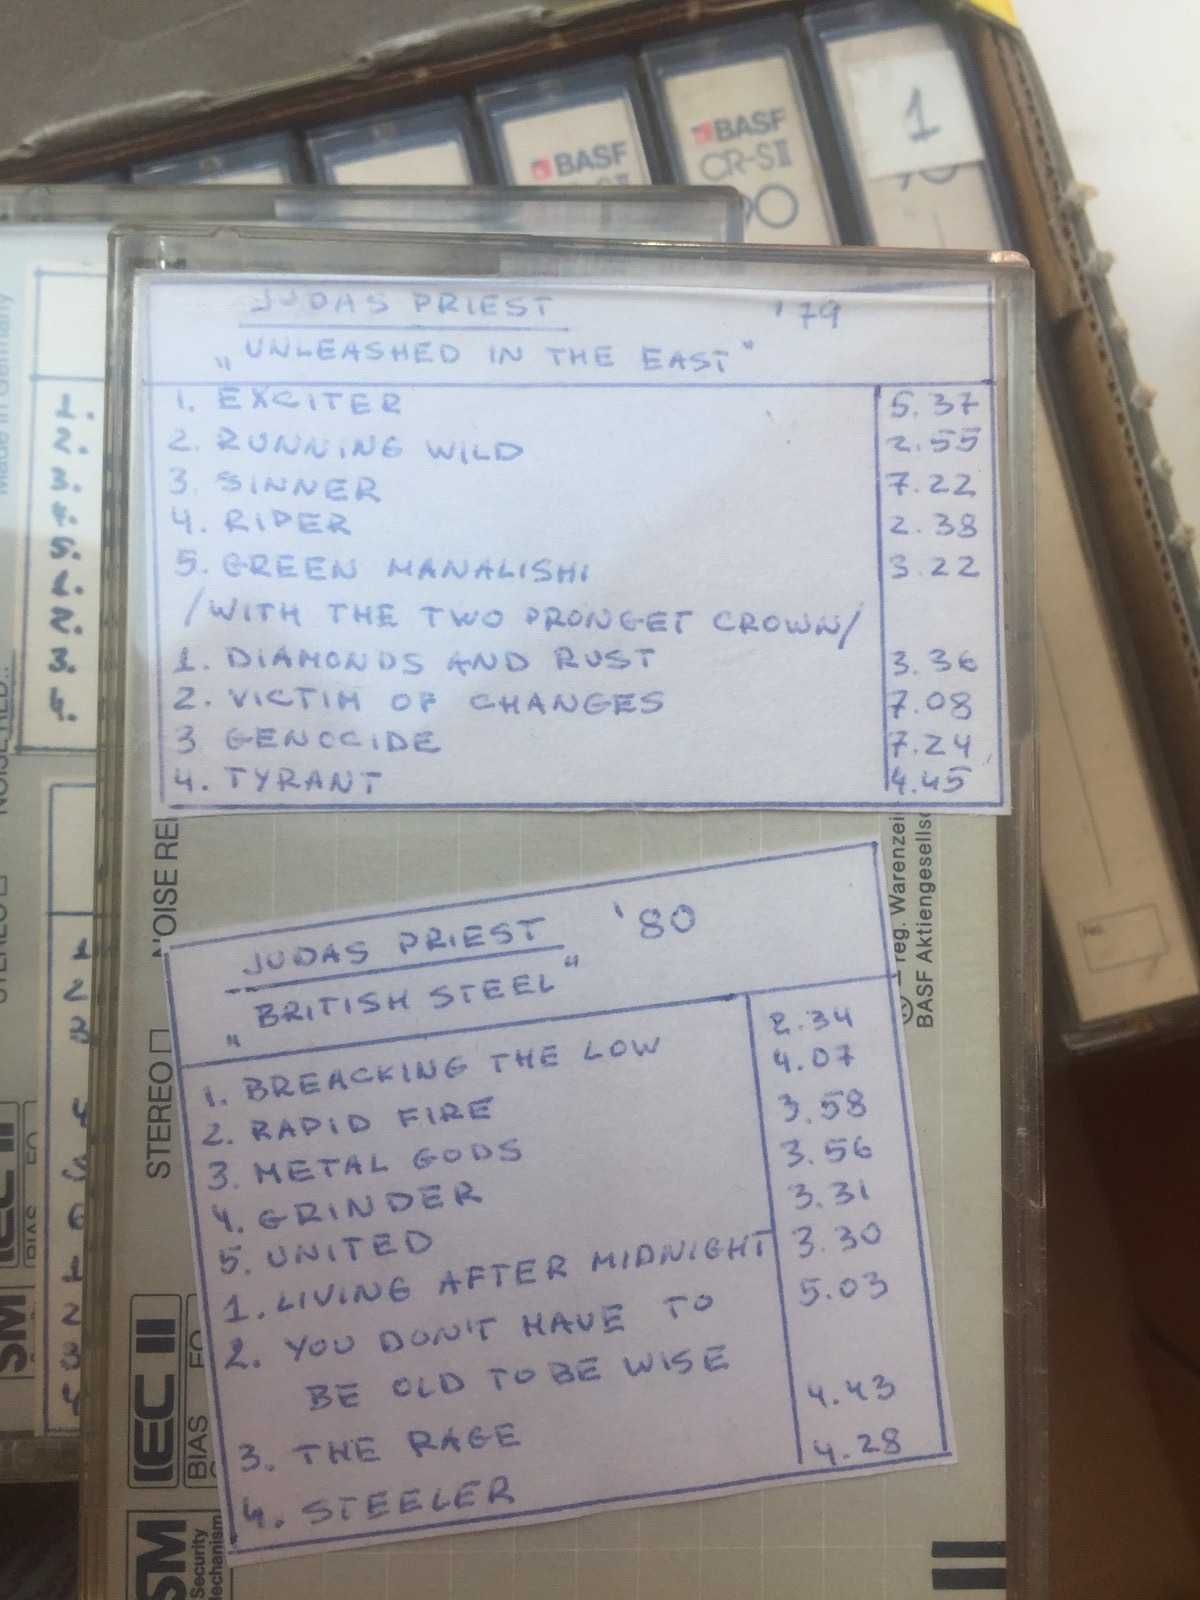 BASF
BASF
CR-SII
90
1
Made in Germany
1.
2.
3.
4.
5.
1.
2.
3.
4.
JUDAS PRIEST '79
„UNLEASHED IN THE EAST"
1. EXCITER 5.37
2. RUNNING WILD 2.55
3. SINNER 7.22
4. RIDER 2.38
5. GREEN MANALISHI 3.22
/WITH THE TWO PRONGET CROWN/
1. DIAMONDS AND RUST 3.36
2. VICTIM OF CHANGES 7.08
3 GENOCIDE 7.24
4. TYRANT 4.45
JUDAS PRIEST '80
„BRITISH STEEL"
1. BREACKING THE LOW 2.34
2. RAPID FIRE 4.07
3. METAL GODS 3.58
4. GRINDER 3.56
5. UNITED 3.31
1. LIVING AFTER MIDNIGHT 3.30
2. YOU DON'T HAVE TO 5.03
BE OLD TO BE WISE
3. THE RAGE 4.43
4. STEELER 4.28
STEREO
NOISE RE
reg. Warenzei
BASF Aktiengesellsc
IEC II
BIAS
SM
Security
Mechanism
1
2
3
4
5
6
1
2
3
4
IEC II
BIAS
SM